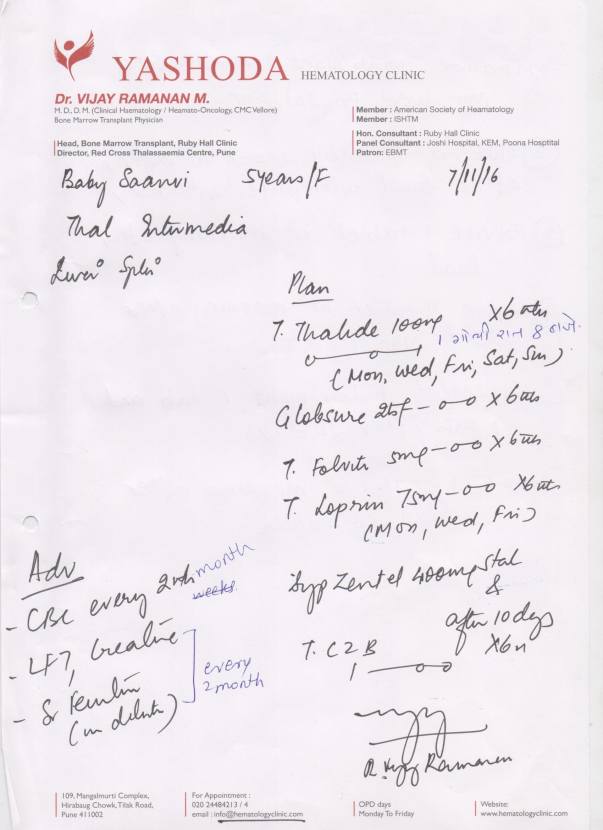 YASHODA HEMATOLOGY CLINIC
Dr. VIJAY RAMANAN M.
M. D., D. M. (Clinical Haematology / Heamato-Oncology, CMC Vellore)
Bone Marrow Transplant Physician
Head, Bone Marrow Transplant, Ruby Hall Clinic
Director, Red Cross Thalassaemia Centre, Pune
Member : American Society of Heamatology
Member : ISHTM
Hon. Consultant : Ruby Hall Clinic
Panel Consultant : Joshi Hospital, KEM, Poona Hosptital
Patron: EBMT
Baby Saanvi 5years/F 7/11/16
Thal Intermedia
Liver° Spln°
Plan
T. Thalide 100mg X6
(Mon, Wed, Fri, Sat, Sun)
Globsure 2tsf - 0-0 X6
T. Folvite 5mg - 0-0 X6
T. Loprin 75mg - 0-0 X6
(Mon, Wed, Fri)
Syp Zentel 400mg Stat
&
after 10 days
T. C2B X6
1-0-0
Adv
- CBC every 2 month
weeks
- LFT, Creatine
- Sr Ferritin
(in dilute)
every
2 month
Dr. Vijay Ramanan
109, Mangalmurti Complex,
Hirabaug Chowk, Tilak Road,
Pune 411002
For Appointment :
020 24484213 / 4
email : info@hematologyclinic.com
OPD days
Monday To Friday
Website:
www.hematologyclinic.com